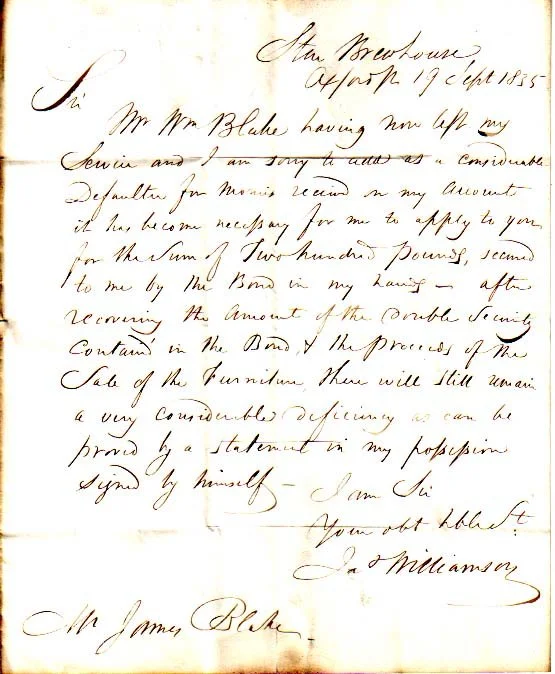 Star Brewhouse,
19 Sept 1835
Sir
Mr Wm Blake having now left my
Service and I am sorry to add as a considerable
Defaulter for Monies received on my Account
it has become necessary for me to apply to you
for the Sum of Two hundred Pounds, secured
to me by the Bond in my hands – after
recovering the Amount of the Double Security
Contain'd in the Bond, & the Proceeds of the
Sale of the Furniture, there will still remain
a very considerable deficiency as can be
proved by a statement in my possession
signed by himself –
I am Sir
Your obt hble St.
Jas Williamson
Mr James Blake –